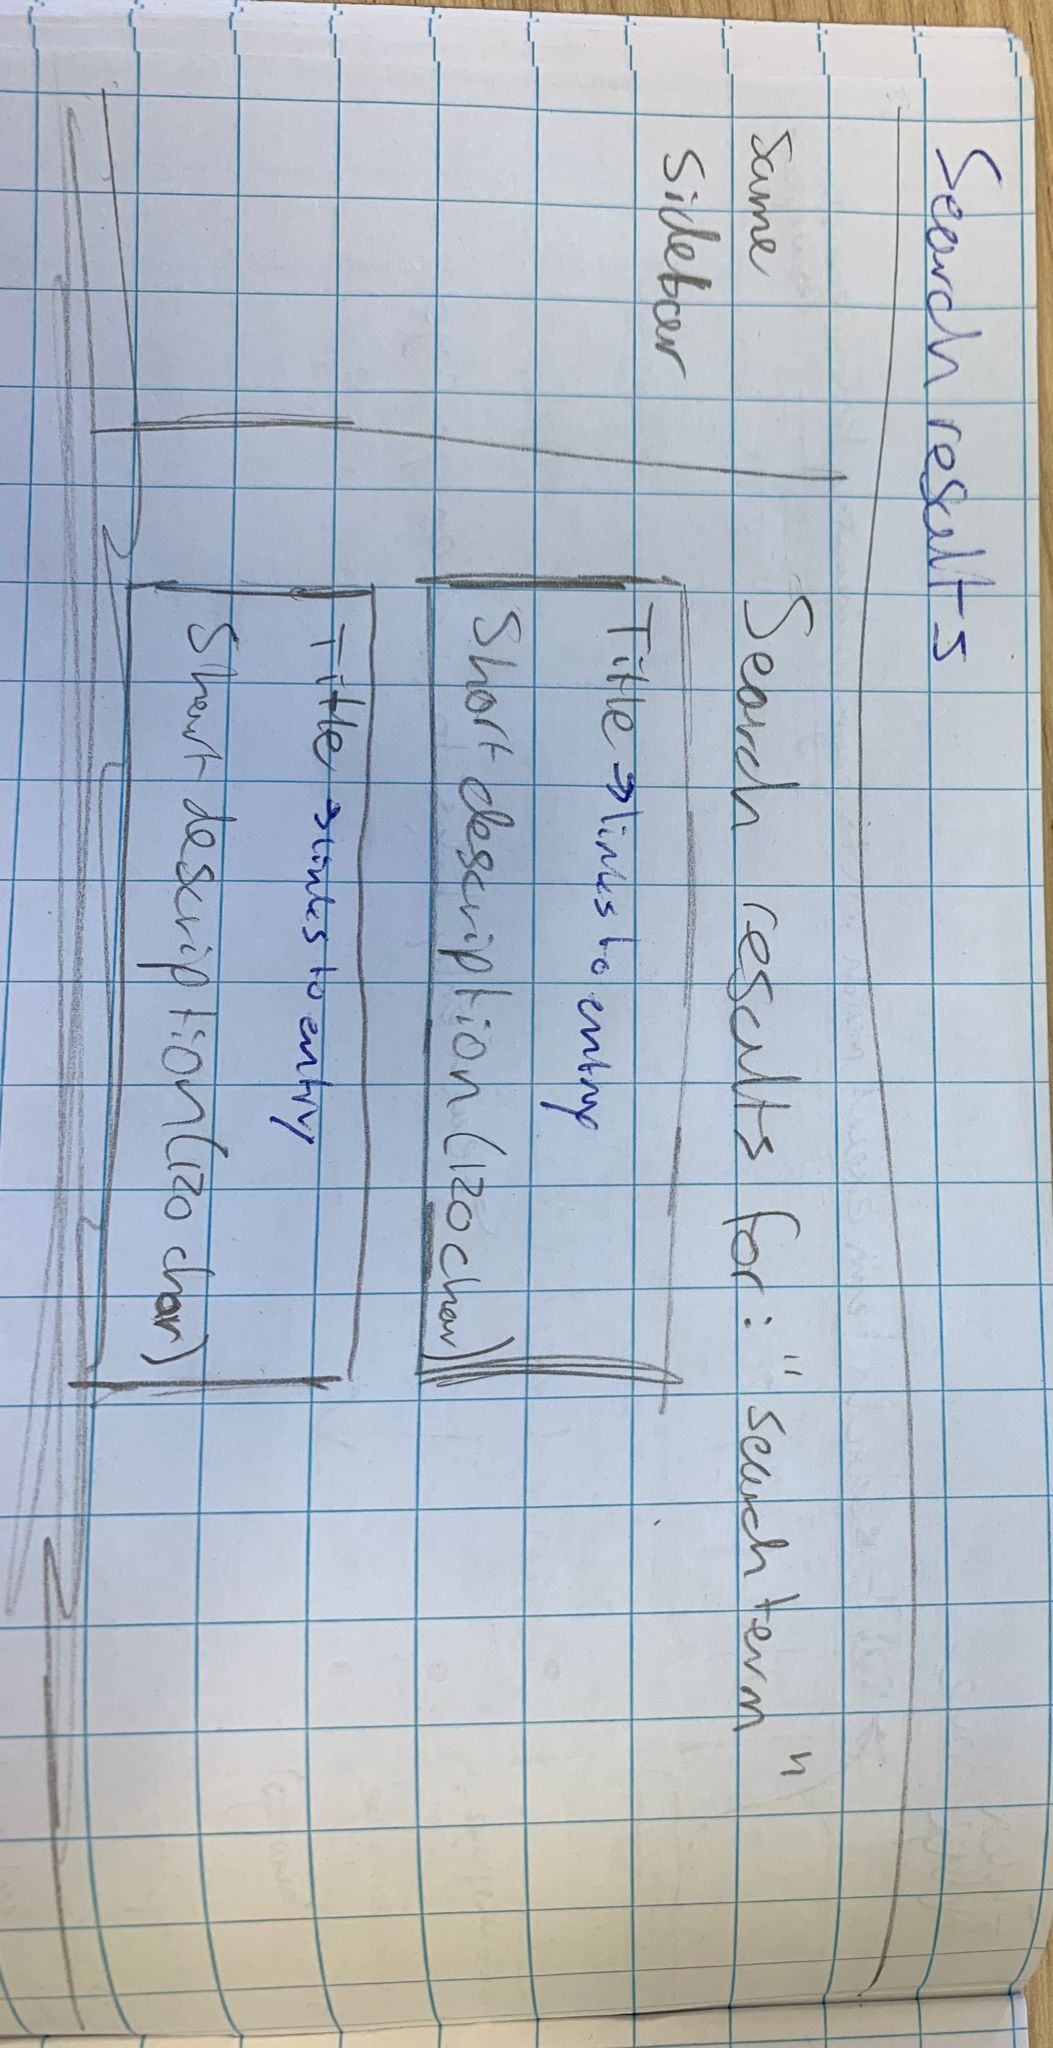 Search results
Same
Sidebar
Search results for: "search term"
Title → links to entry
Short description (120 char)
Title → links to entry
Short description (120 char)